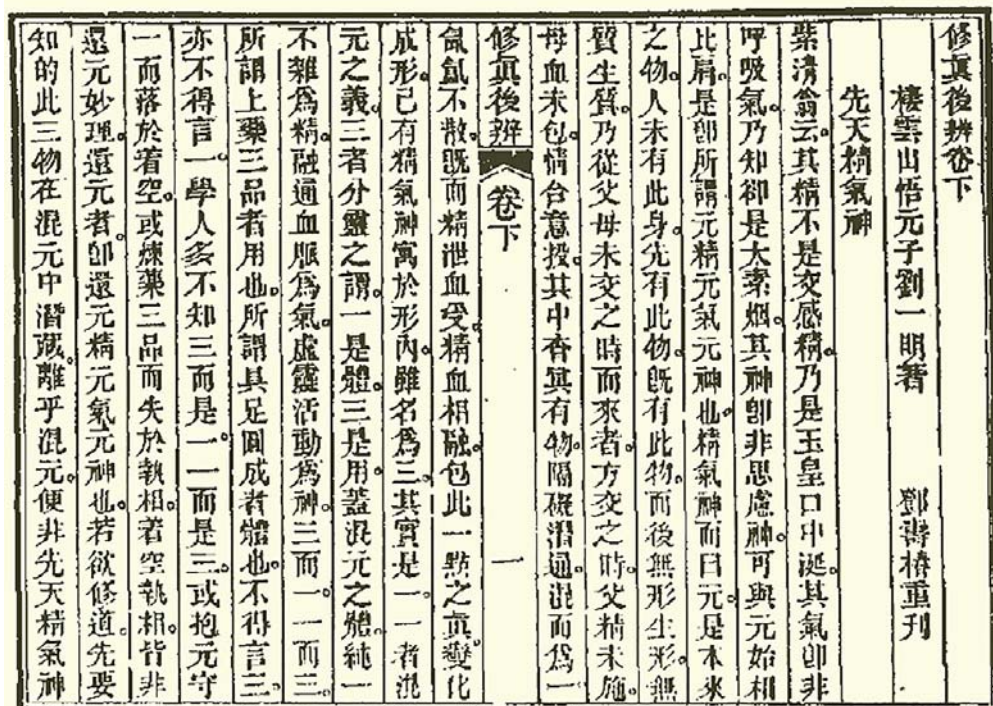 修眞後辨卷下
棲雲山悟元子劉一明著　鄧壽椿重刊
先天精氣神
紫清翁云其精不是交感精乃是玉皇口中涎其氣卽非
呼吸氣乃知卻是太素烟其神卽非思慮神可與元始相
比肩是卽所謂元精元氣元神也精氣神而曰元是本來
之物人未有此身先有此物旣有此物而後無形生形無
質生質乃從父母未交之時而來者方交之時父精未施
母血未包情合意投其中杳冥有物隔礙潛通混而爲一
修眞後辨　卷下　一
氤氳不散旣而精泄血受精血相融包此一點之眞變化
成形已有精氣神寓於形內雖名爲三其實是一一者混
元之義三者分靈之謂一是體三是用蓋混元之體純一
不雜爲精融通血脈爲氣虛靈活動爲神三而一一而三
所謂上藥三品者用也所謂具足圓成者體也不得言三
亦不得言一學人多不知三而是一一而是三或抱元守
一而落於着空或煉藥三品而失於執相着空執相皆非
還元妙理還元者卽還元精元氣元神也若欲修道先要
知的此三物在混元中潛藏離乎混元便非先天精氣神